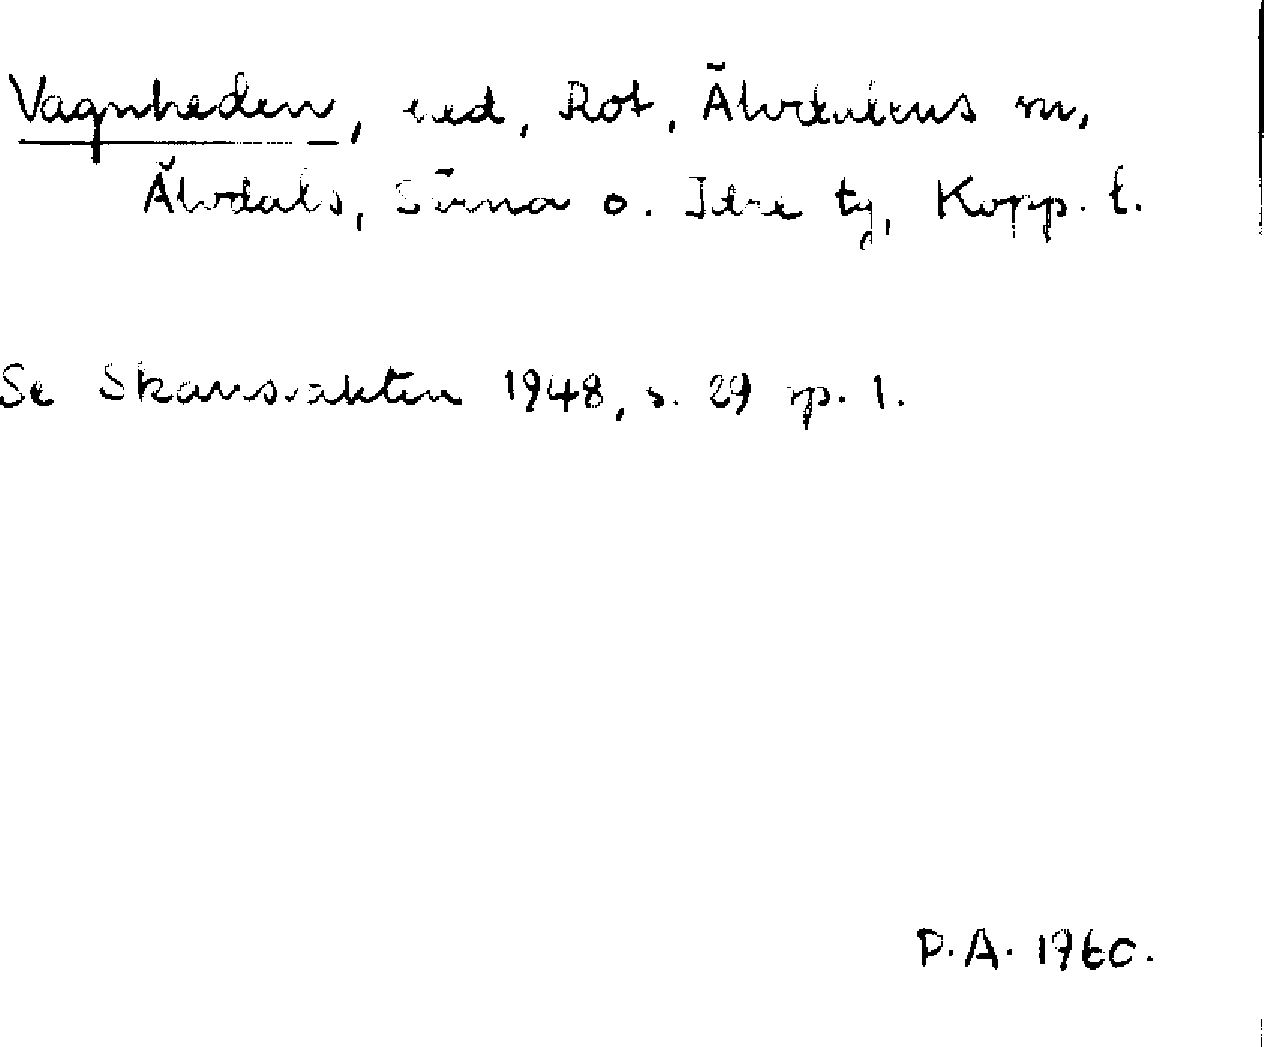 Vagnheden, hed, Rot, Älvdalens sn,
Älvdals, Särna o. Idre tg, Kopp. l.
Se Skansvakten 1948, s. 29 sp. 1.
P.A. 1960.